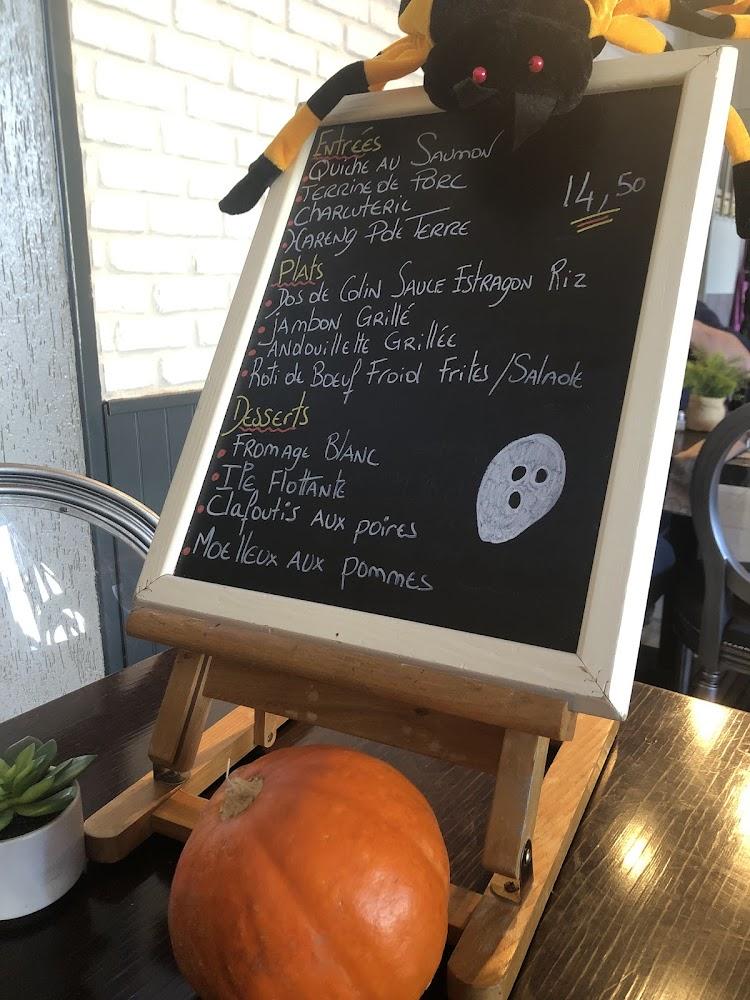 Entrées
Quiche au Saumon
Terrine de Porc
Charcuterie
Hareng P de Terre
14,50
Plats
Dos de Colin Sauce Estragon Riz
Jambon Grillé
Andouillette Grillée
Roti de Boeuf Froid Frites/Salade
Desserts
Fromage Blanc
Ile Flottante
Clafoutis aux poires
Moelleux aux pommes